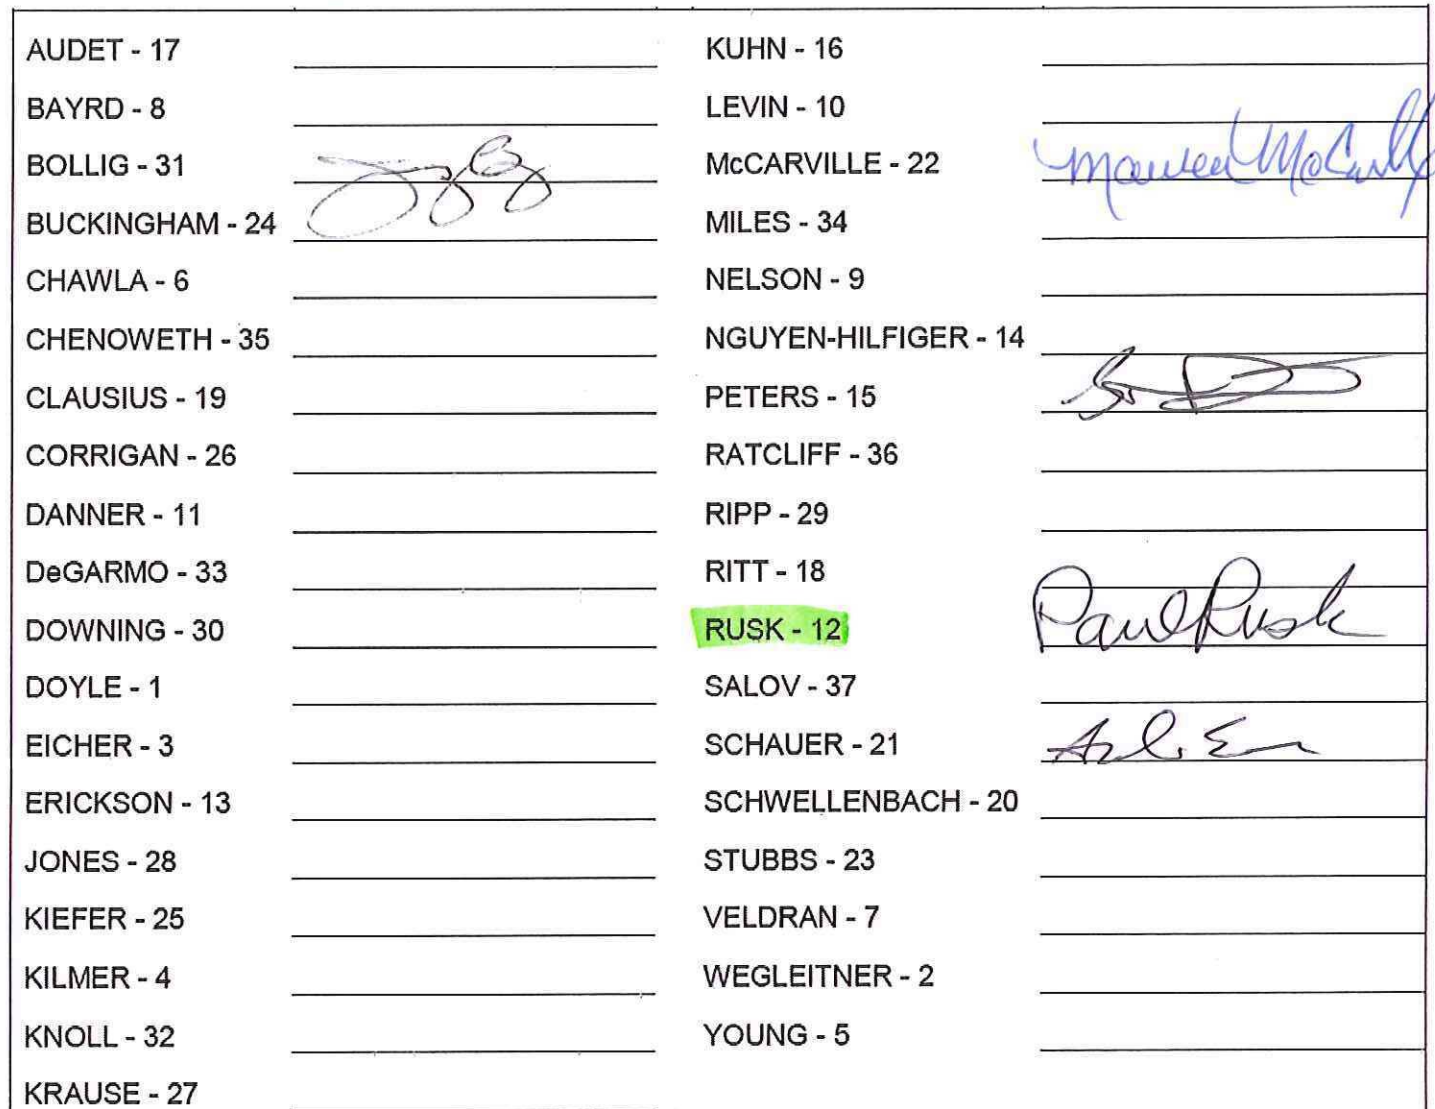 AUDET - 17
BAYRD - 8
BOLLIG - 31
BUCKINGHAM - 24
CHAWLA - 6
CHENOWETH - 35
CLAUSIUS - 19
CORRIGAN - 26
DANNER - 11
DeGARMO - 33
DOWNING - 30
DOYLE - 1
EICHER - 3
ERICKSON - 13
JONES - 28
KIEFER - 25
KILMER - 4
KNOLL - 32
KRAUSE - 27
KUHN - 16
LEVIN - 10
McCARVILLE - 22
MILES - 34
NELSON - 9
NGUYEN-HILFIGER - 14
PETERS - 15
RATCLIFF - 36
RIPP - 29
RITT - 18
RUSK - 12 Paul Rusk
SALOV - 37
SCHAUER - 21
SCHWELLENBACH - 20
STUBBS - 23
VELDRAN - 7
WEGLEITNER - 2
YOUNG - 5